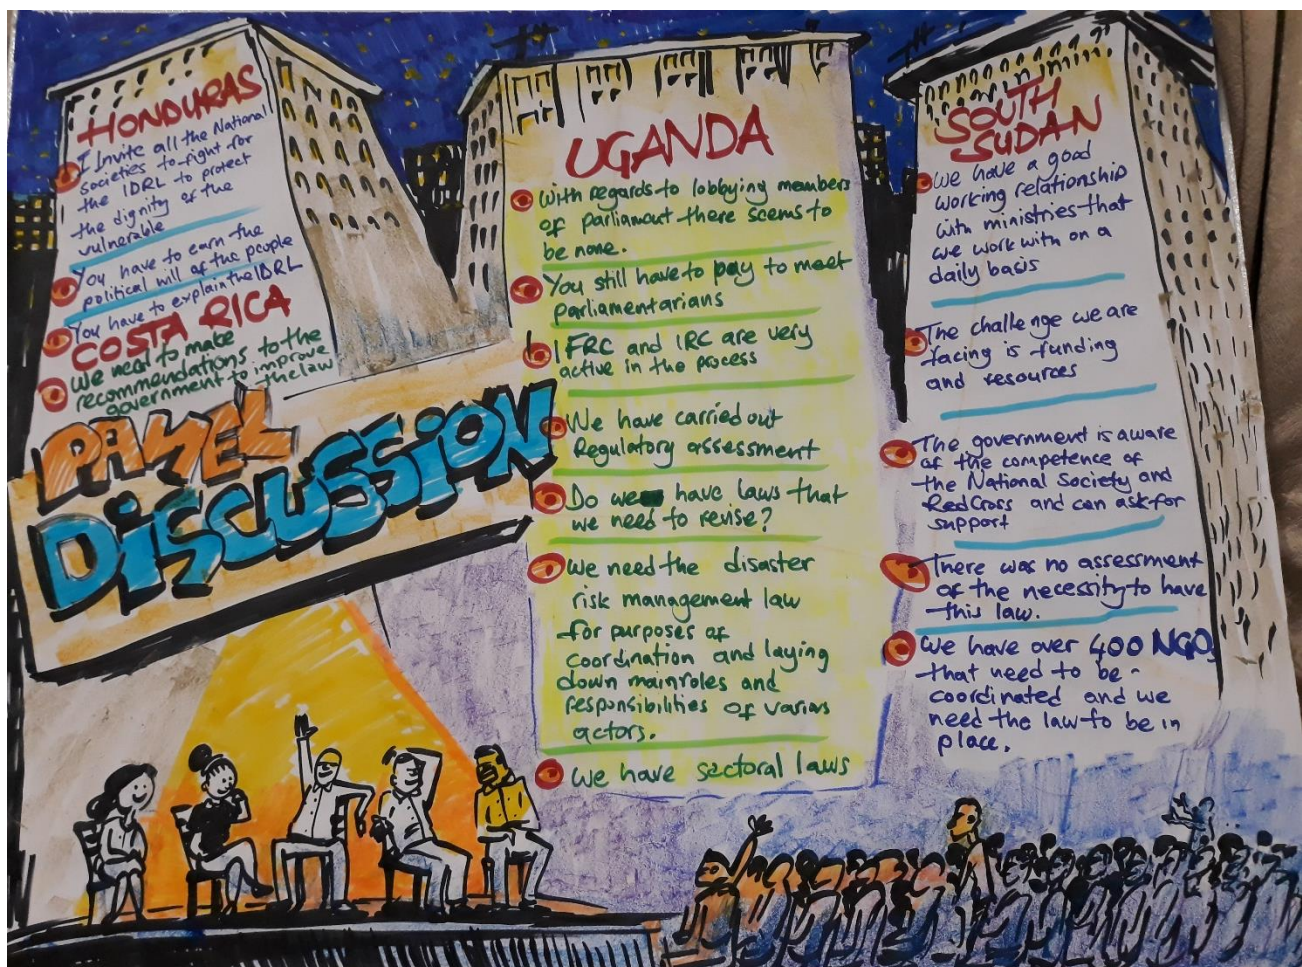 HONDURAS
I Invite all the National
societies to fight for
the IDRL to protect
the dignity of the
vulnerable
You have to earn the
political will of the people
You have to explain the IDRL
COSTA RICA
We need to make
recommendations to the
government to improve
the law
PANEL
DISCUSSION
UGANDA
With regards to lobbying members
of parliamout there seems to
be none.
You still have to pay to meet
parliamentarians
IFRC and IRC are very
active in the process
We have carried out
Regulatory assessment
Do we have laws that
we need to revise?
We need the disaster
risk management law
for purposes of
coordination and laying
down mainroles and
responsibilities of varias
actors.
We have sectoral laws
SOUTH
SUDAN
We have a good
working relationship
with ministries that
we work with on a
daily basis
The challenge we are
facing is funding
and resources
The government is aware
of the competence of
the National Society and
RedCross and can ask for
support
There was no assessment
of the necessity to have
this law.
We have over 400 NGOs
that need to be
coordinated and we
need the law to be in
place.